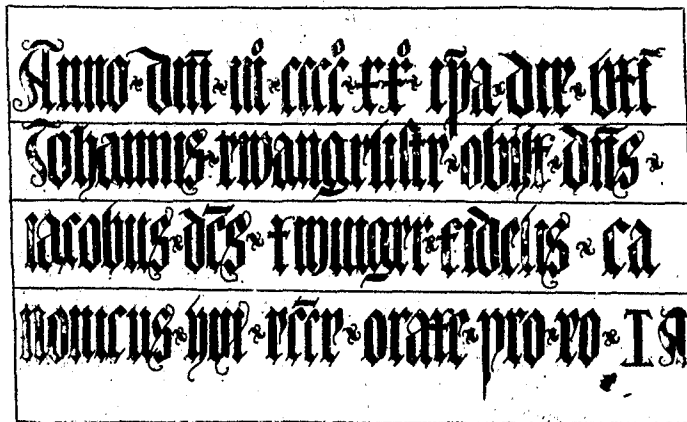 Anno · dm̄ · m̊ · cccc̊ · xx̊ · ip̄a · die · bt̄i
Johannis · ewangeliste · obiit · dn̄s ·
iacobus · dc̄s · twinger · fidelis · ca
nonicus · hui · ecc̄e · orate · pro · eo ·